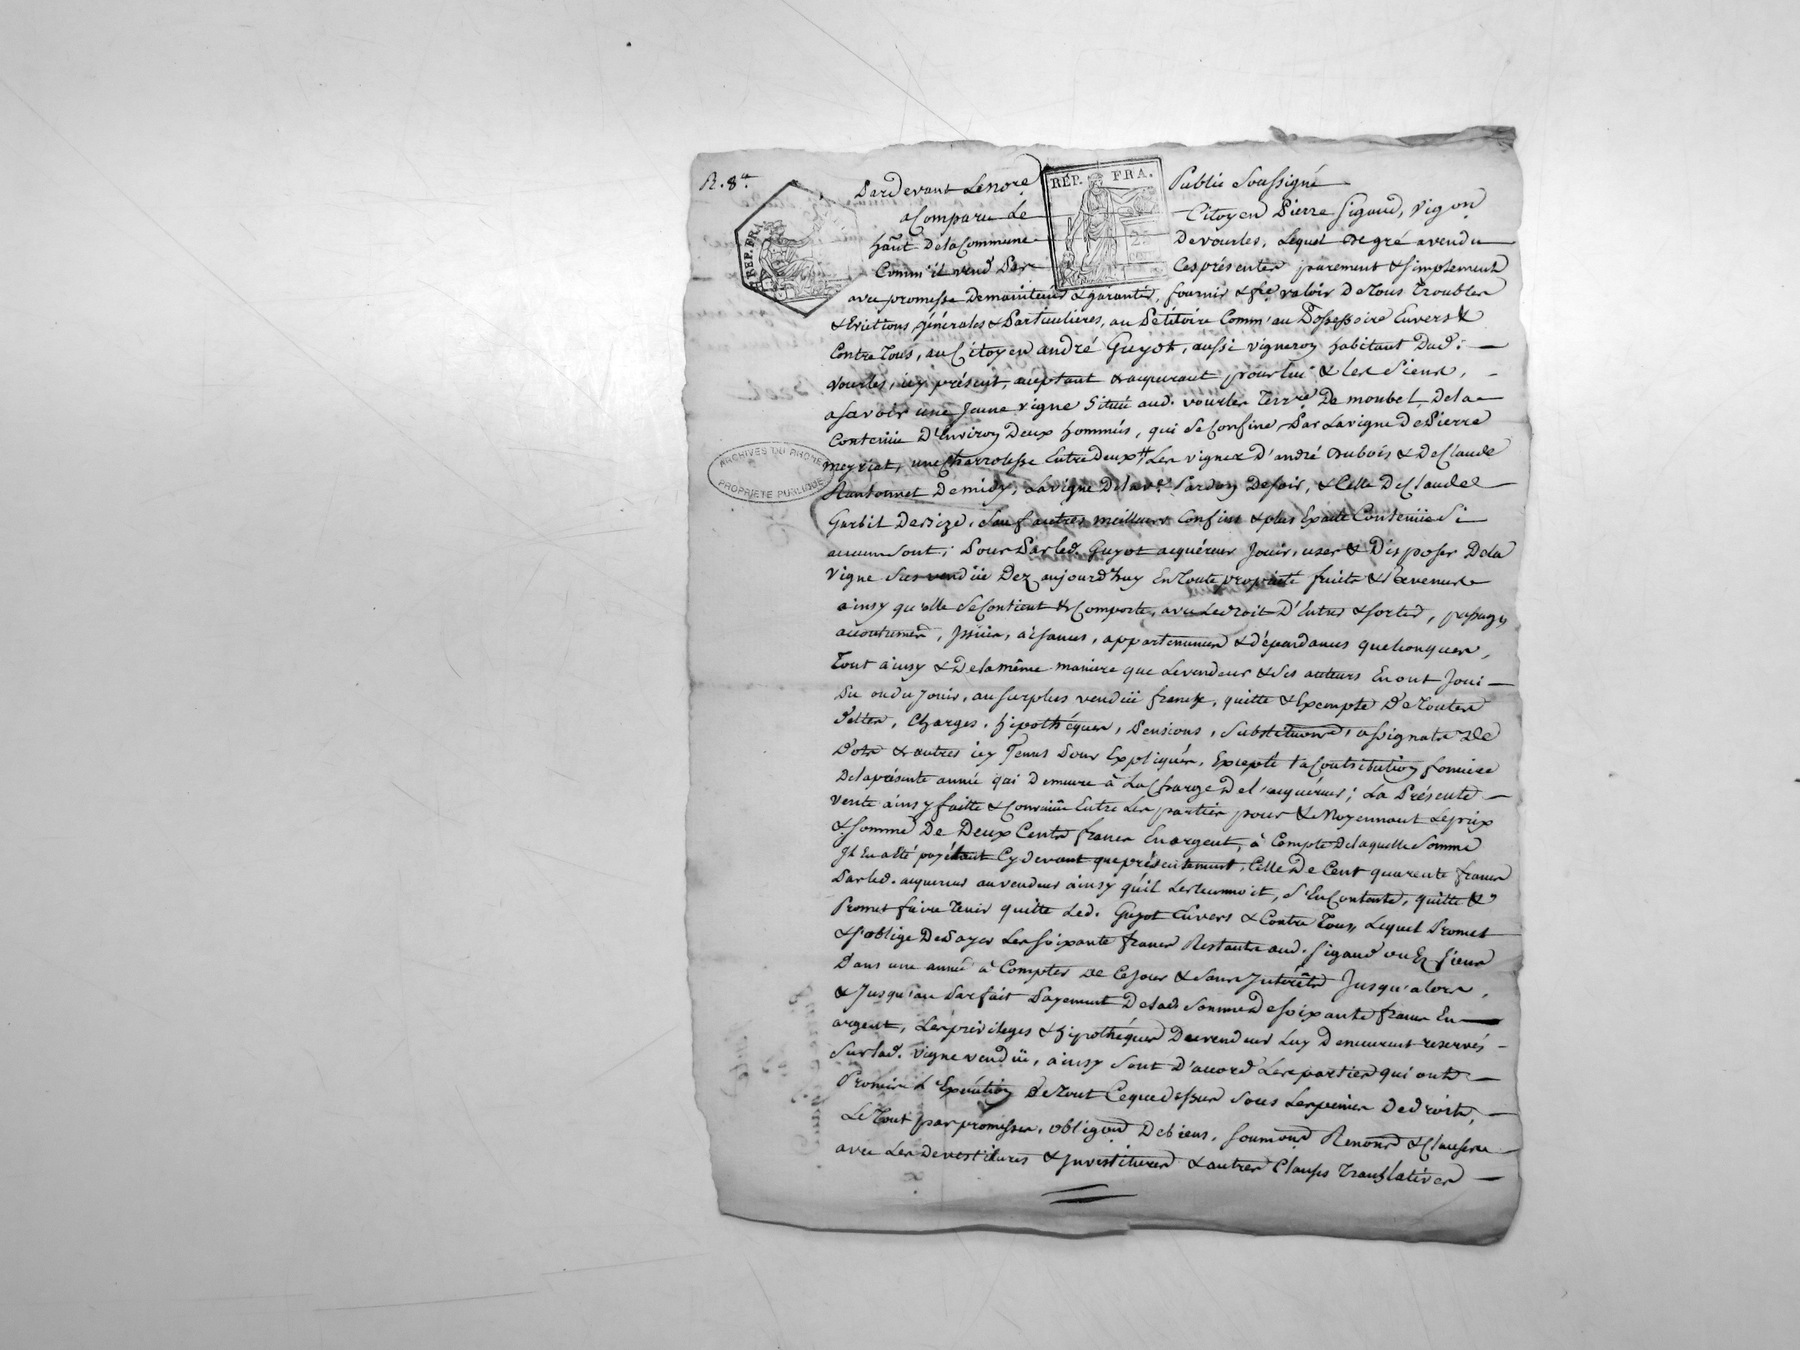 R. 8ᵉ.
Pardevant Le nore REP. FRA. Public Soussigné
a Comparu Le Citoyen Pierre Sigaud, Vigon
REP. FRA.
haut De la Commune De vourles, Lequel De gré a vendu
Comm'il vend Par Ces présentes purement & simplement
25
avec promesse De maintenir & garantir, fournir & fre valoir De tous Troubles
& Evictions générales & Particulieres, au Pétitoire Comm'au Possessoire Envers &
Contre Tous, au Citoyen andré Guyot, aussi vigneron habitant Dud:
Vourles, icy présent, aceptant & aquerant pour lui & les Siens,
a savoir une Jeune vigne Située aud. vourles Terre De monbel, De la
Contenüe D'Environ Deux hommés, qui se Confine, Par La vigne De Pierre
meyriat, une Charrolesse Entredeux # Les vignes D'andré Dubois & De Claude
ARCHIVES DU RHONE
PROPRIÉTÉ PUBLIQUE
De midy, La vigne De la ve. Pardon De soir, & Celle De Claude
Garbil De bize, Sauf autres meilleurs Confins & plus Exacte Contenüe Si
aucuns sont; Pour Par led. Guyot acquéreur Jouir, user & Disposer De la
Vigne Sus vendüe Dez aujourd'huy En Toute propriété fruits & Revenus
ainsy qu'elle se Contient & Comporte, avec Le droit D'Entrés & sorties, passages
accoutumés, Issües, aisances, appartenances & dépendances quelconques,
Tout ainsy & De la même maniere que Le vendeur & Ses auteurs En ont Joui
Du ou du Jouir, au surplus vendüe franche, quitte & Exempte De Toutes
Dettes, Charges, hipothéques, Pensions, Substitutions, assignats De
Dots & autres icy Tenus Pour Expliqués, Excepté la Contribution fonciere
De la présente année qui Demeure à La Charge De l'acquéreur; La Présente
Vente ainsy faitte & Convenüe Entre Les parties pour & Moyennant Le prix
& somme De Deux Cents francs En argent, à Compte De laquelle Somme
Il En a Eté payé tant Cy devant que présentement, Celle De Cent quarente francs
Par led. acquereur au vendeur ainsy qu'il Le reconnoit, S'En Contente, quitte &
Promet faire Tenir quitte Led. Guyot Envers & Contre Tous, Lequel Promet
& s'oblige De Payer Les soixante francs Restants aud. Sigaud ou Ez siens
Dans une année à Compter De Ce Jour & sans Intérêts Jusqu'alors,
& Jusqu'au Parfait Payement De lad Somme De soixante francs En
argent, Les privileges & hipothéques Du vendeur Luy Demeurent reservés
Sur lad. Vigne vendüe, ainsy Sont D'accord Les parties qui ont
Promis L'Execution De Tout Ce que Dessus Sous Les peines De droits,
Le Tout par promesses, obligons De biens, soumons Renons & Clauses
avec Les Devestitures & Investitures & autres Clauses Translatives